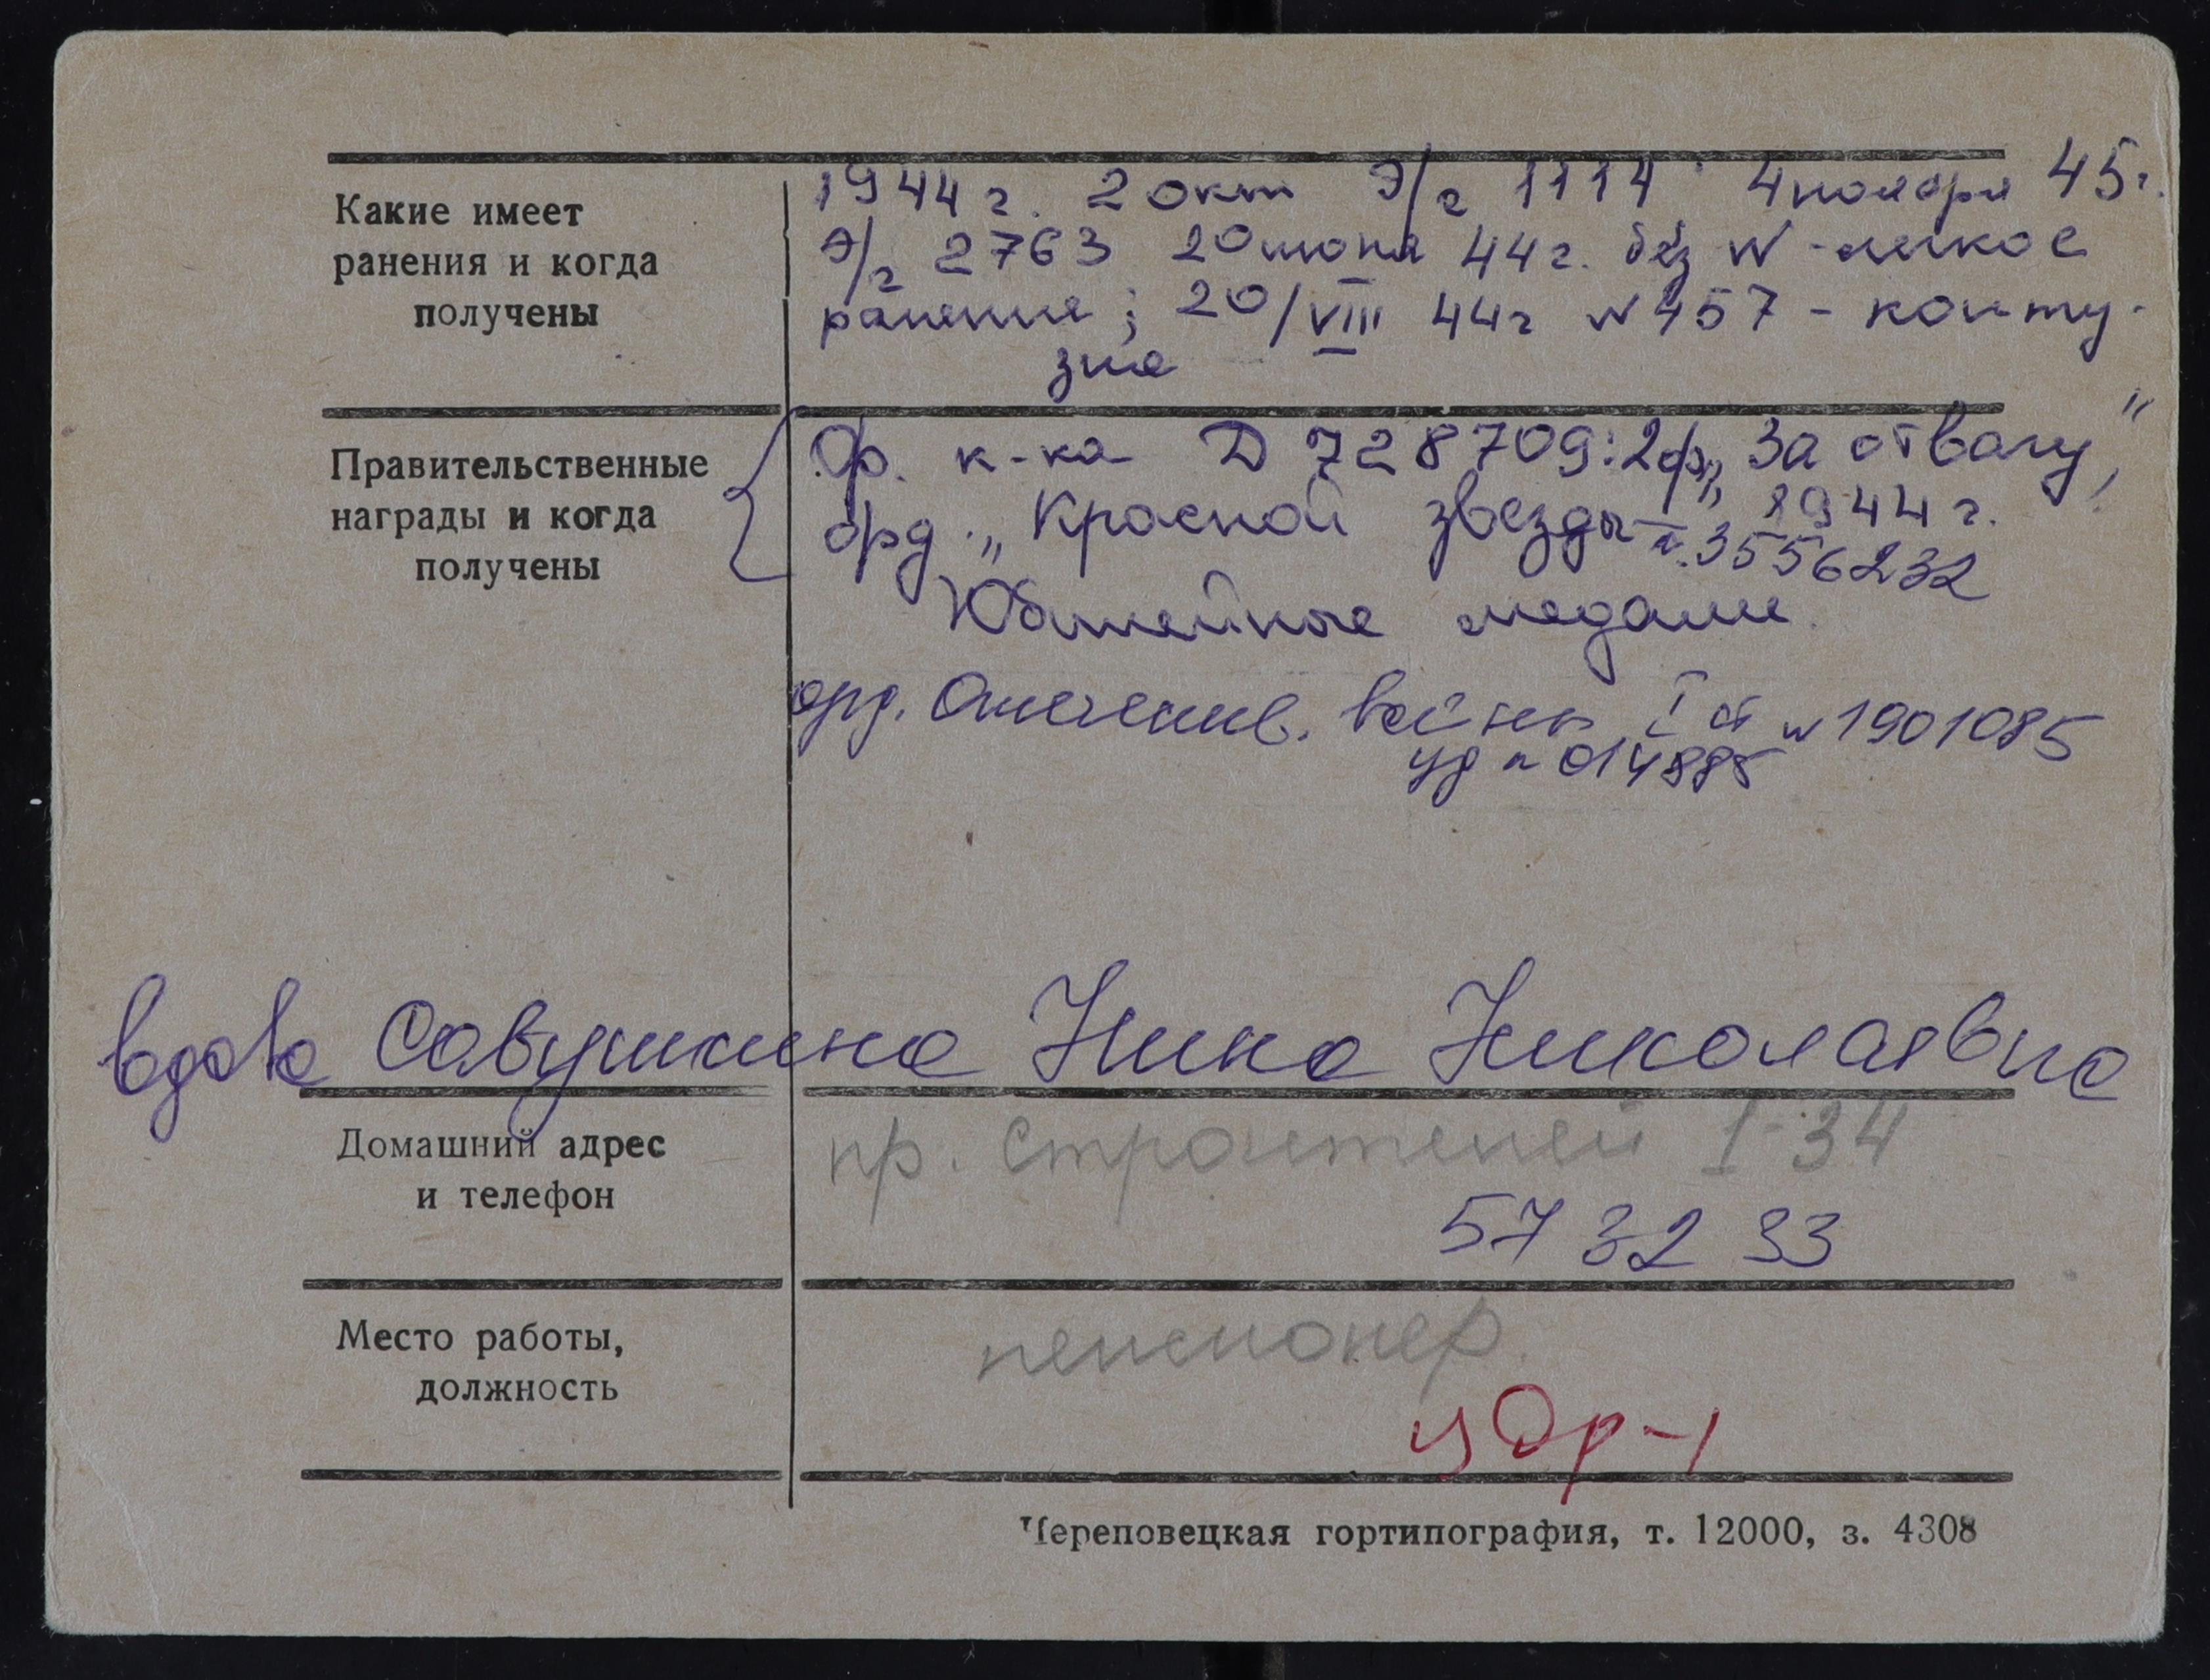 Какие имеет
ранения и когда
получены
1944 г. 2 окт Э/г 1114 4 ноября 45 г.
Э/г 2763 20 июня 44 г. без N - легкое
ранение; 20/VIII 44 г N 457 - конту-
зия
Правительственные
награды и когда
получены
Ор. к-ка Д 728709: 2 ор „За отвагу",
орд. „Красной звезды" 1944 г.
N. 3556232
Юбилейные медали
орд. Отечеств. войны I ст N 1901085
уд N 014885
вдова Савушкина Нина Николаевна
Домашний адрес
и телефон
пр. Строителей 1-34
57 32 33
Место работы,
должность
пенсионер
Череповецкая гортипография, т. 12000, з. 4308